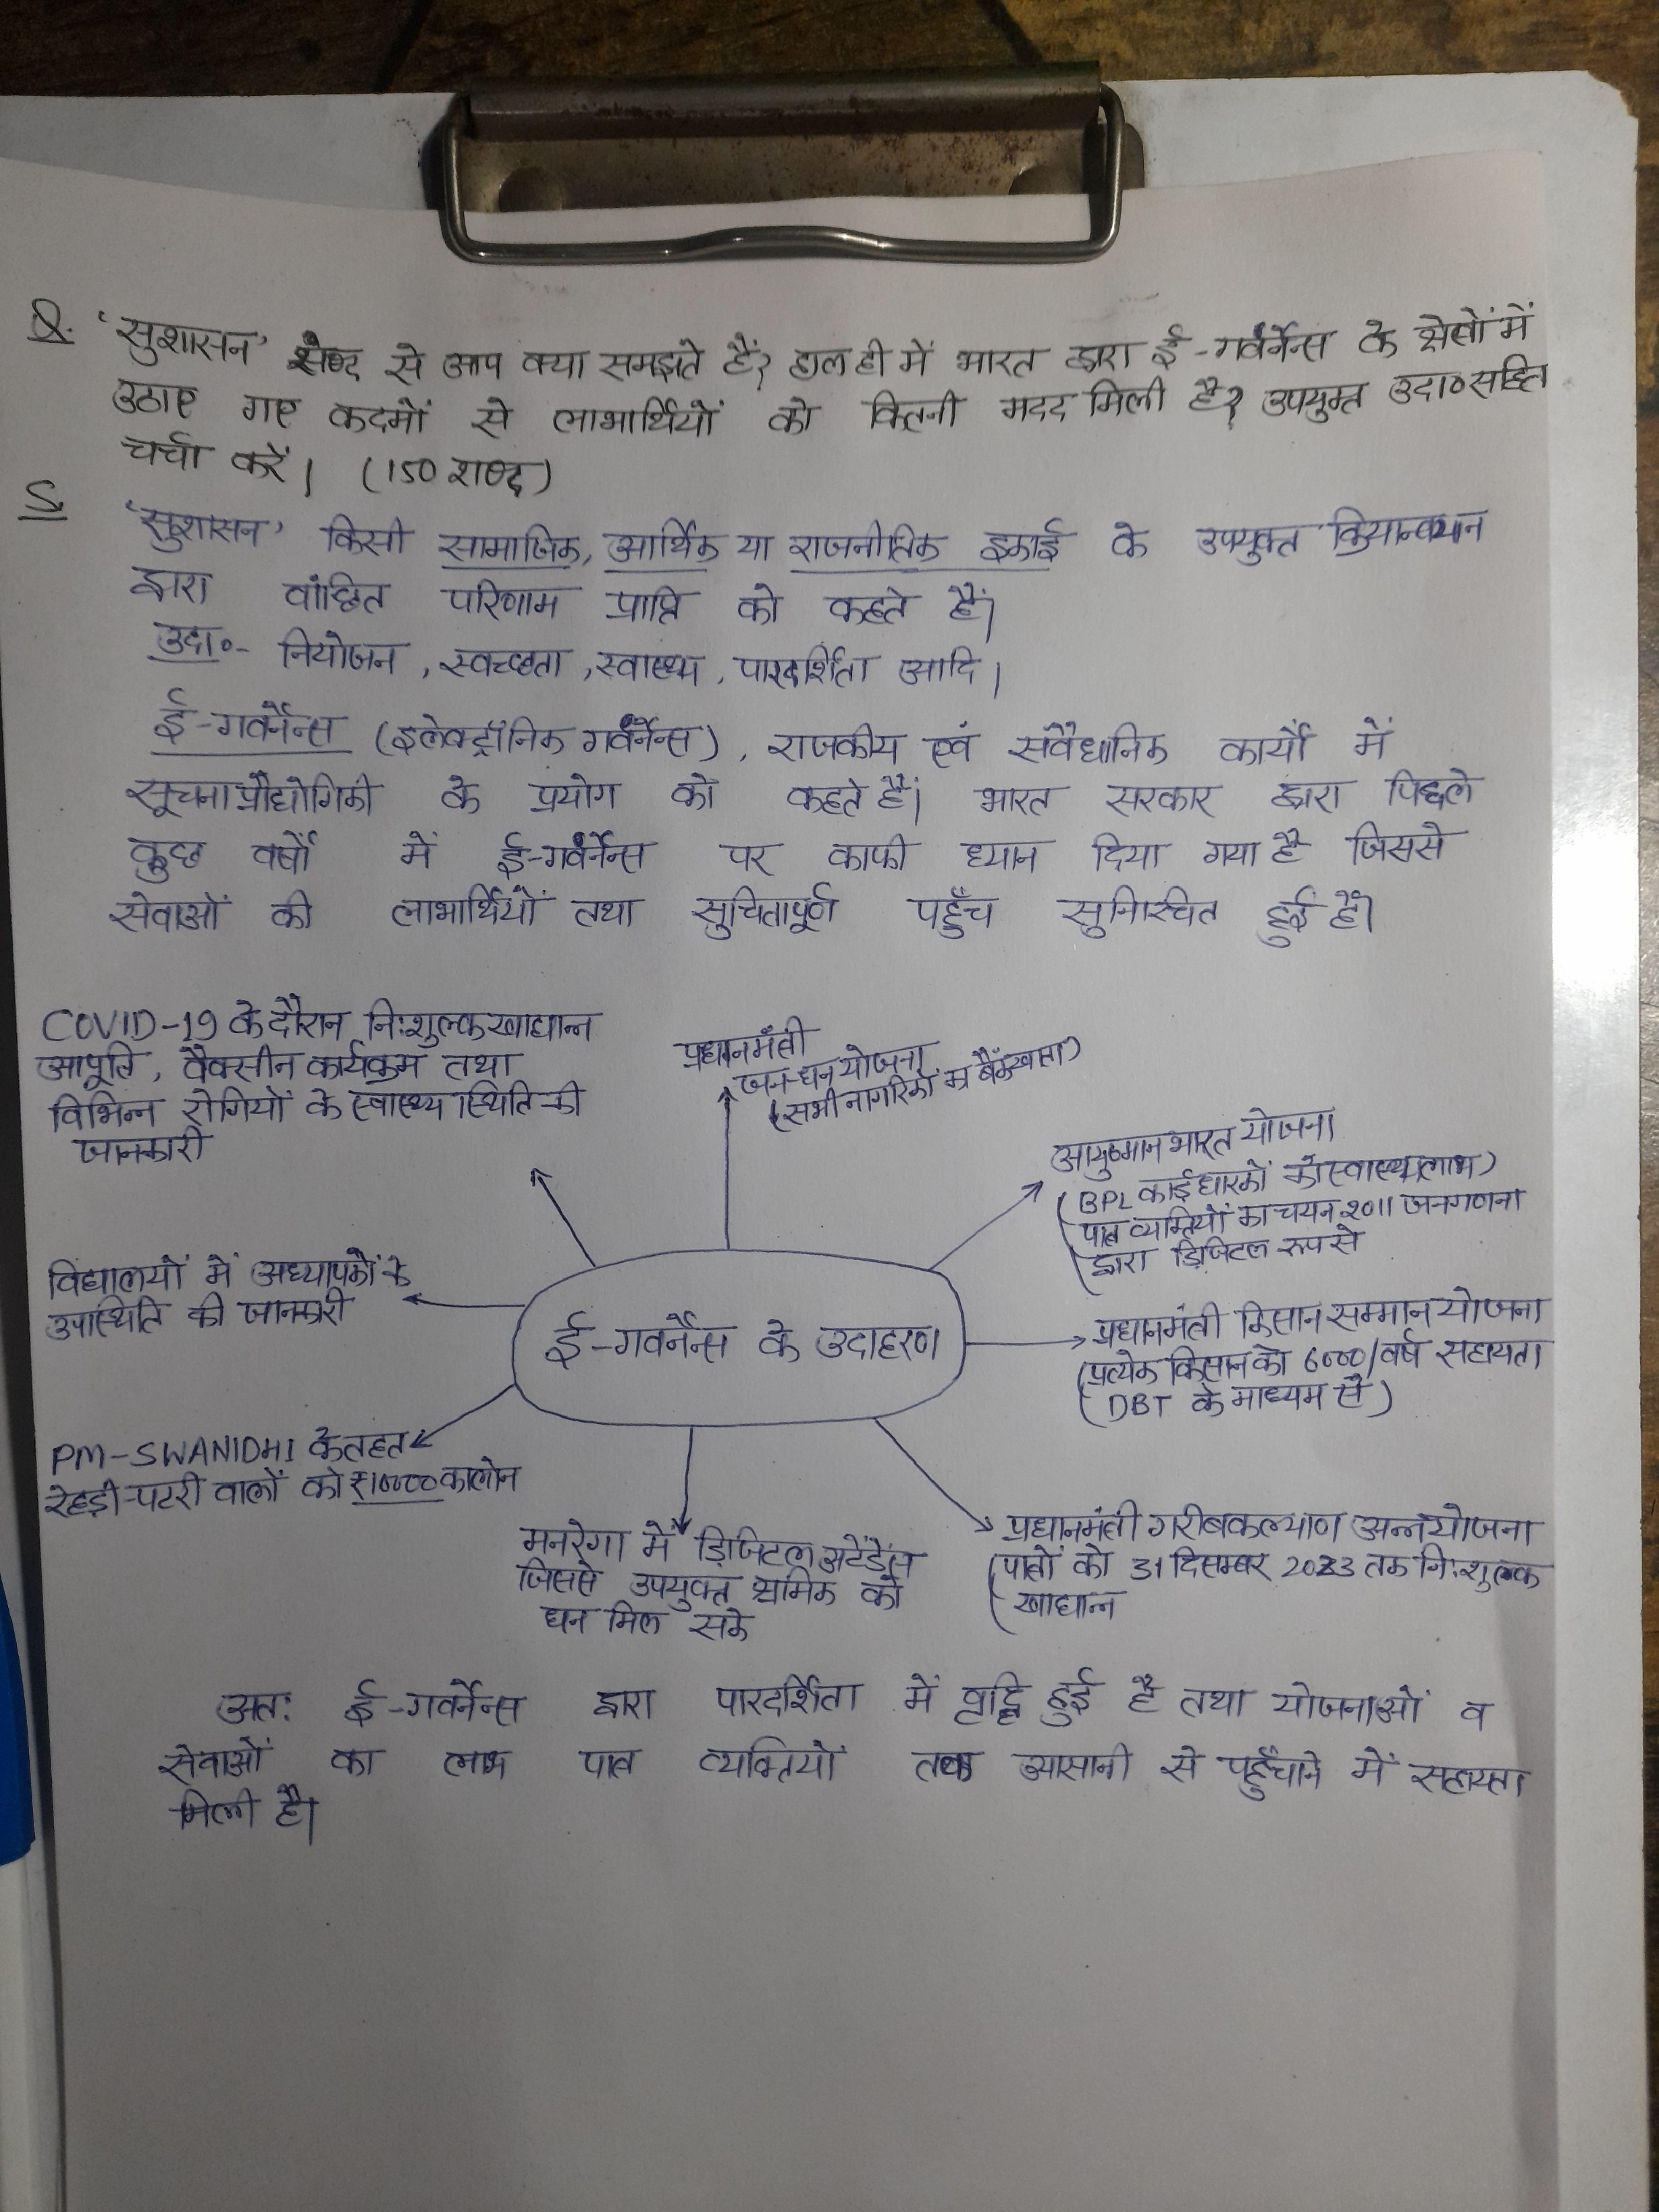 Q. 'सुशासन' शब्द से आप क्या समझते हैं? हाल ही में भारत द्वारा ई-गवर्नेन्स के क्षेत्रों में
उठाए गए कदमों से लाभार्थियों को कितनी मदद मिली है? उपयुक्त उदा० सहित
चर्चा करें। (150 शब्द)
S 'सुशासन' किसी सामाजिक, आर्थिक या राजनीतिक इकाई के उपयुक्त क्रियान्वयन
द्वारा वांछित परिणाम प्राप्ति को कहते हैं।
उदा०- नियोजन, स्वच्छता, स्वास्थ्य, पारदर्शिता आदि।
ई-गवर्नेन्स (इलेक्ट्रॉनिक गवर्नेन्स), राजकीय एवं संवैधानिक कार्यों में
सूचना प्रौद्योगिकी के प्रयोग को कहते हैं। भारत सरकार द्वारा पिछले
कुछ वर्षों में ई-गवर्नेन्स पर काफी ध्यान दिया गया है जिससे
सेवाओं की लाभार्थियों तथा सुचितापूर्ण पहुँच सुनिश्चित हुई है।
COVID-19 के दौरान नि:शुल्क खाद्यान्न
आपूर्ति, वैक्सीन कार्यक्रम तथा
विभिन्न रोगियों के स्वास्थ्य स्थिति की
जानकारी
प्रधानमंत्री
जन-धन योजना
(सभी नागरिकों का बैंक खाता)
आयुष्मान भारत योजना
(BPL कार्डधारकों को स्वास्थ्य लाभ)
पात्र व्यक्तियों का चयन 2011 जनगणना
द्वारा डिजिटल रूप से
विद्यालयों में अध्यापकों के
उपस्थिति की जानकारी
ई-गवर्नेन्स के उदाहरण
प्रधानमंत्री किसान सम्मान योजना
(प्रत्येक किसान को 6000/वर्ष सहायता
DBT के माध्यम से)
PM-SWANIDHI के तहत
रेहड़ी-पटरी वालों को ₹10000 का लोन
मनरेगा में डिजिटल अटेंडेंस
जिससे उपयुक्त श्रमिक को
धन मिल सके
प्रधानमंत्री गरीब कल्याण अन्न योजना
(पात्रों को 31 दिसम्बर 2023 तक नि:शुल्क
खाद्यान्न
अत: ई-गवर्नेन्स द्वारा पारदर्शिता में वृद्धि हुई है तथा योजनाओं व
सेवाओं का लाभ पात्र व्यक्तियों तक आसानी से पहुँचाने में सहायता
मिली है।